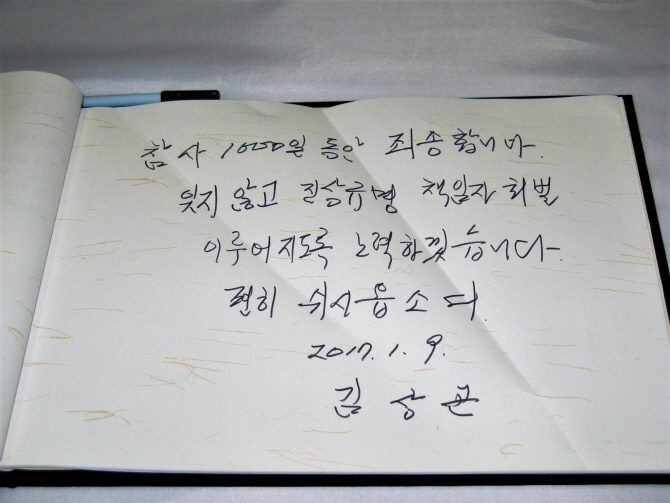 참사 1000일 동안 죄송합니다.
잊지 않고 진상규명 책임자 처벌
이루어지도록 노력하겠습니다.
편히 쉬시옵소서.
2017. 1. 9.
김상곤